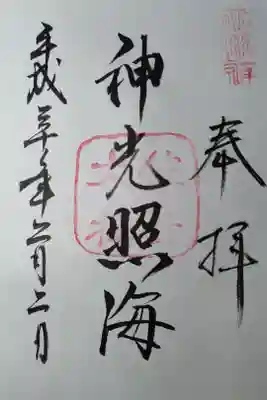 奉拝
神光照海
平成三十年六月二日